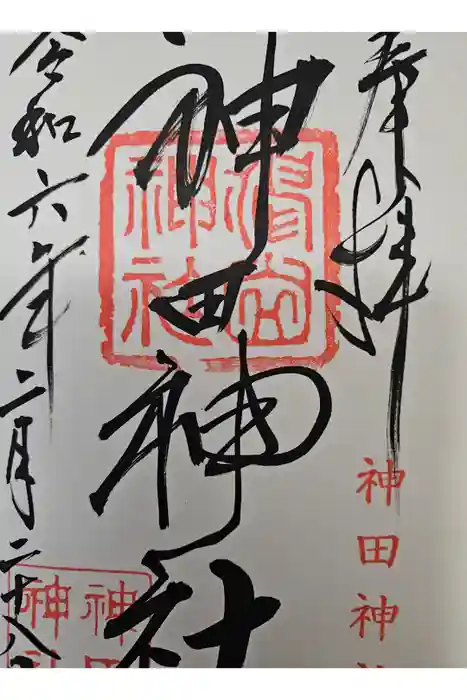 奉拝
神田神
神田神社
神社
令和六年二月二十八日
神田
神